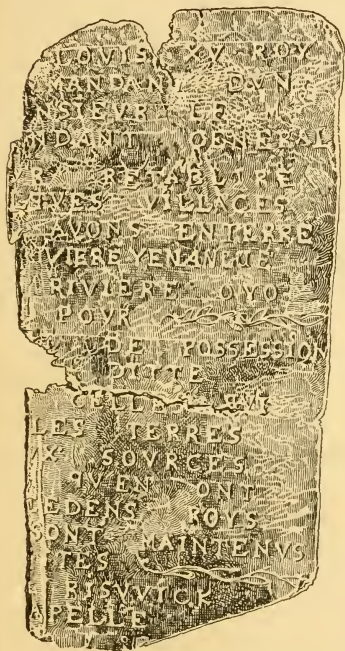 LOUIS XV ROY
MANDANT DVN
NSIEVR LE M
NDANT GENERAL
RETABLIRE
LQVES VILLAGES
AVONS ENTERRE
IVIERE YENANGUE
RIVIERE OYO
POVR
DE POSSESSION
PITTE
CELLE QVI
LES TERRES
VX SOVRCES
QVEN ONT
EDENS ROYS
SONT MAINTENVS
TES
RISVVICK
PELLE